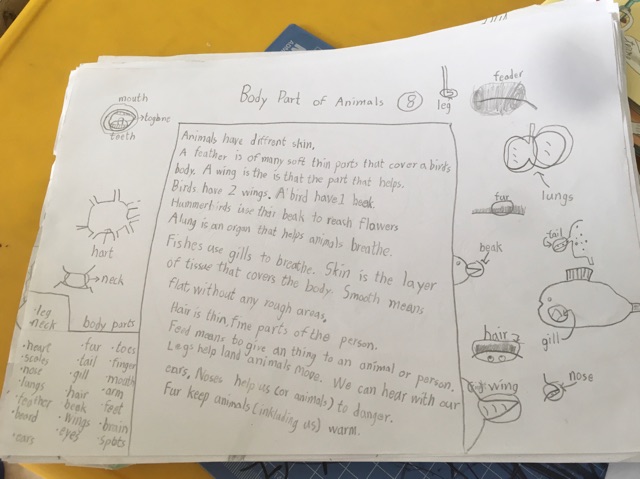 Body Part of Animals 8
mouth
teeth
hart
neck
leg
feader
lungs
fur
tail
beak
gill
hair
wing
nose
Animals have diffrent skin.
A feather is of many soft thin parts that cover a birds
body. A wing is the is that the part that helps.
Birds have 2 wings. A bird have 1 beak.
Hummerbirds use thar beak to reach flowers
A lung is an organ that helps animals breathe.
Fishes use gills to breathe. Skin is the layer
of tissue that covers the body. Smooth means
flat without any rough areas.
Hair is thin, fine parts of the person.
Feed means to give an thing to an animal or person.
Legs help land animals move. We can hear with our
ears. Noses help us (or animals) to danger.
Fur keep animals (inklading us) warm.
body parts
·leg
·neck
·heart
·scales
·nose
·lungs
·feather
·beard
·ears
·fur
·tail
·gill
·hair
·beak
·wings
·eyes
·toes
·finger
·mouth
·arm
·feet
·brain
·spots